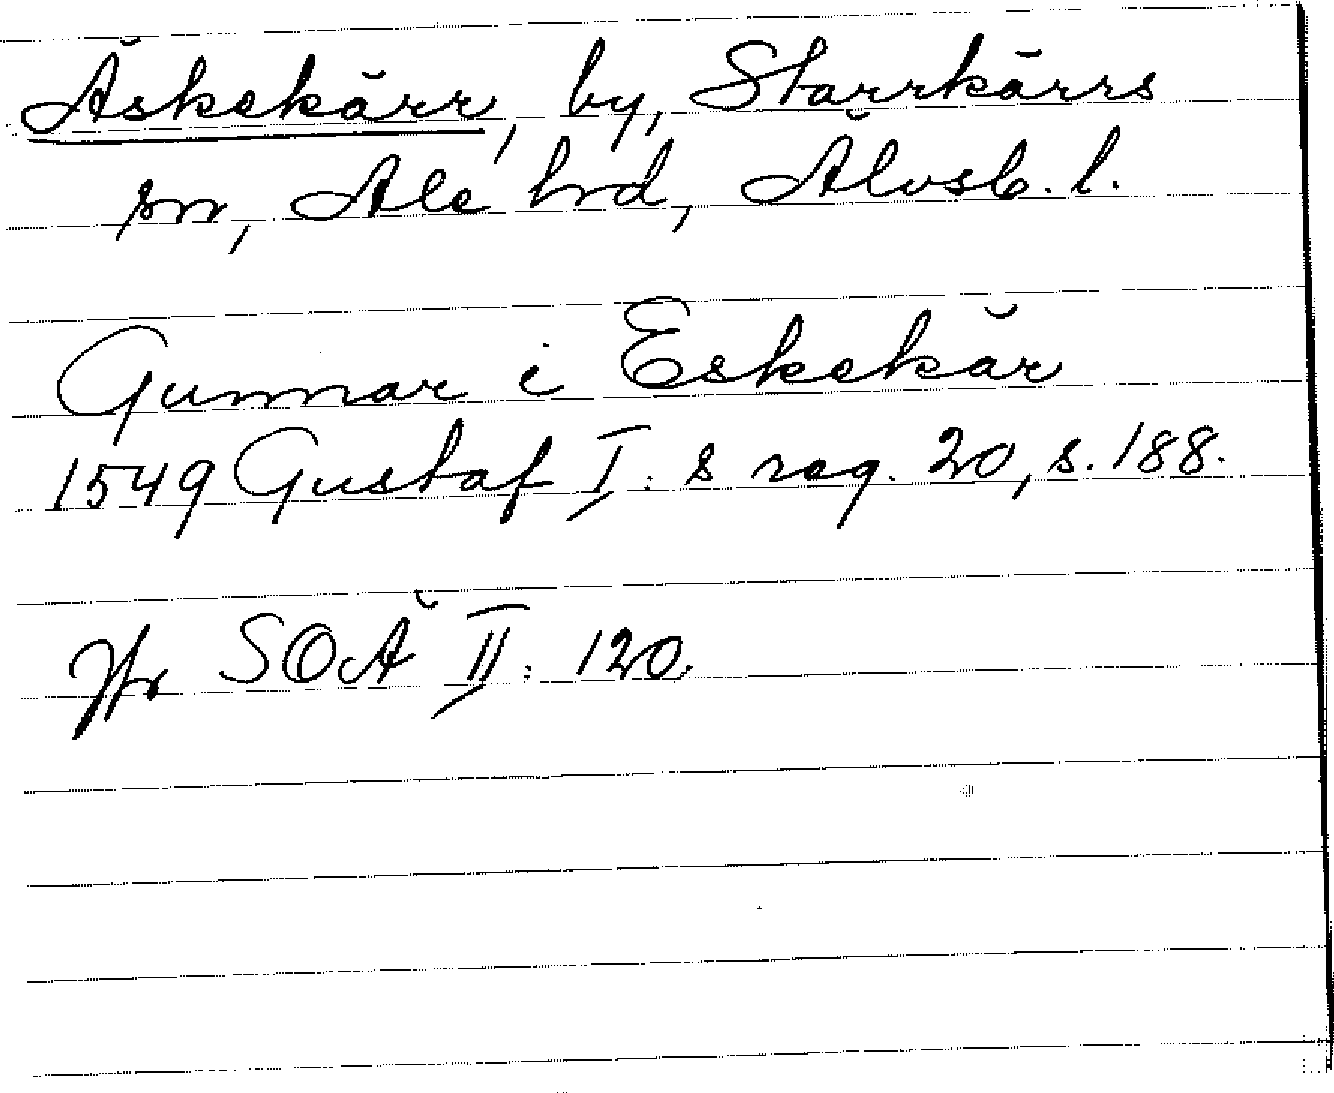 Äskekärr, by, Starrkärrs
sn, Ale hrd, Älvsb. l.
Gunnar i Eskekär
1549 Gustaf I:s reg. 20, s. 188.
Jfr SOÄ II: 120.